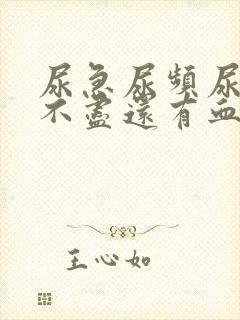 尿急尿頻尿
不盡還有血
王心如